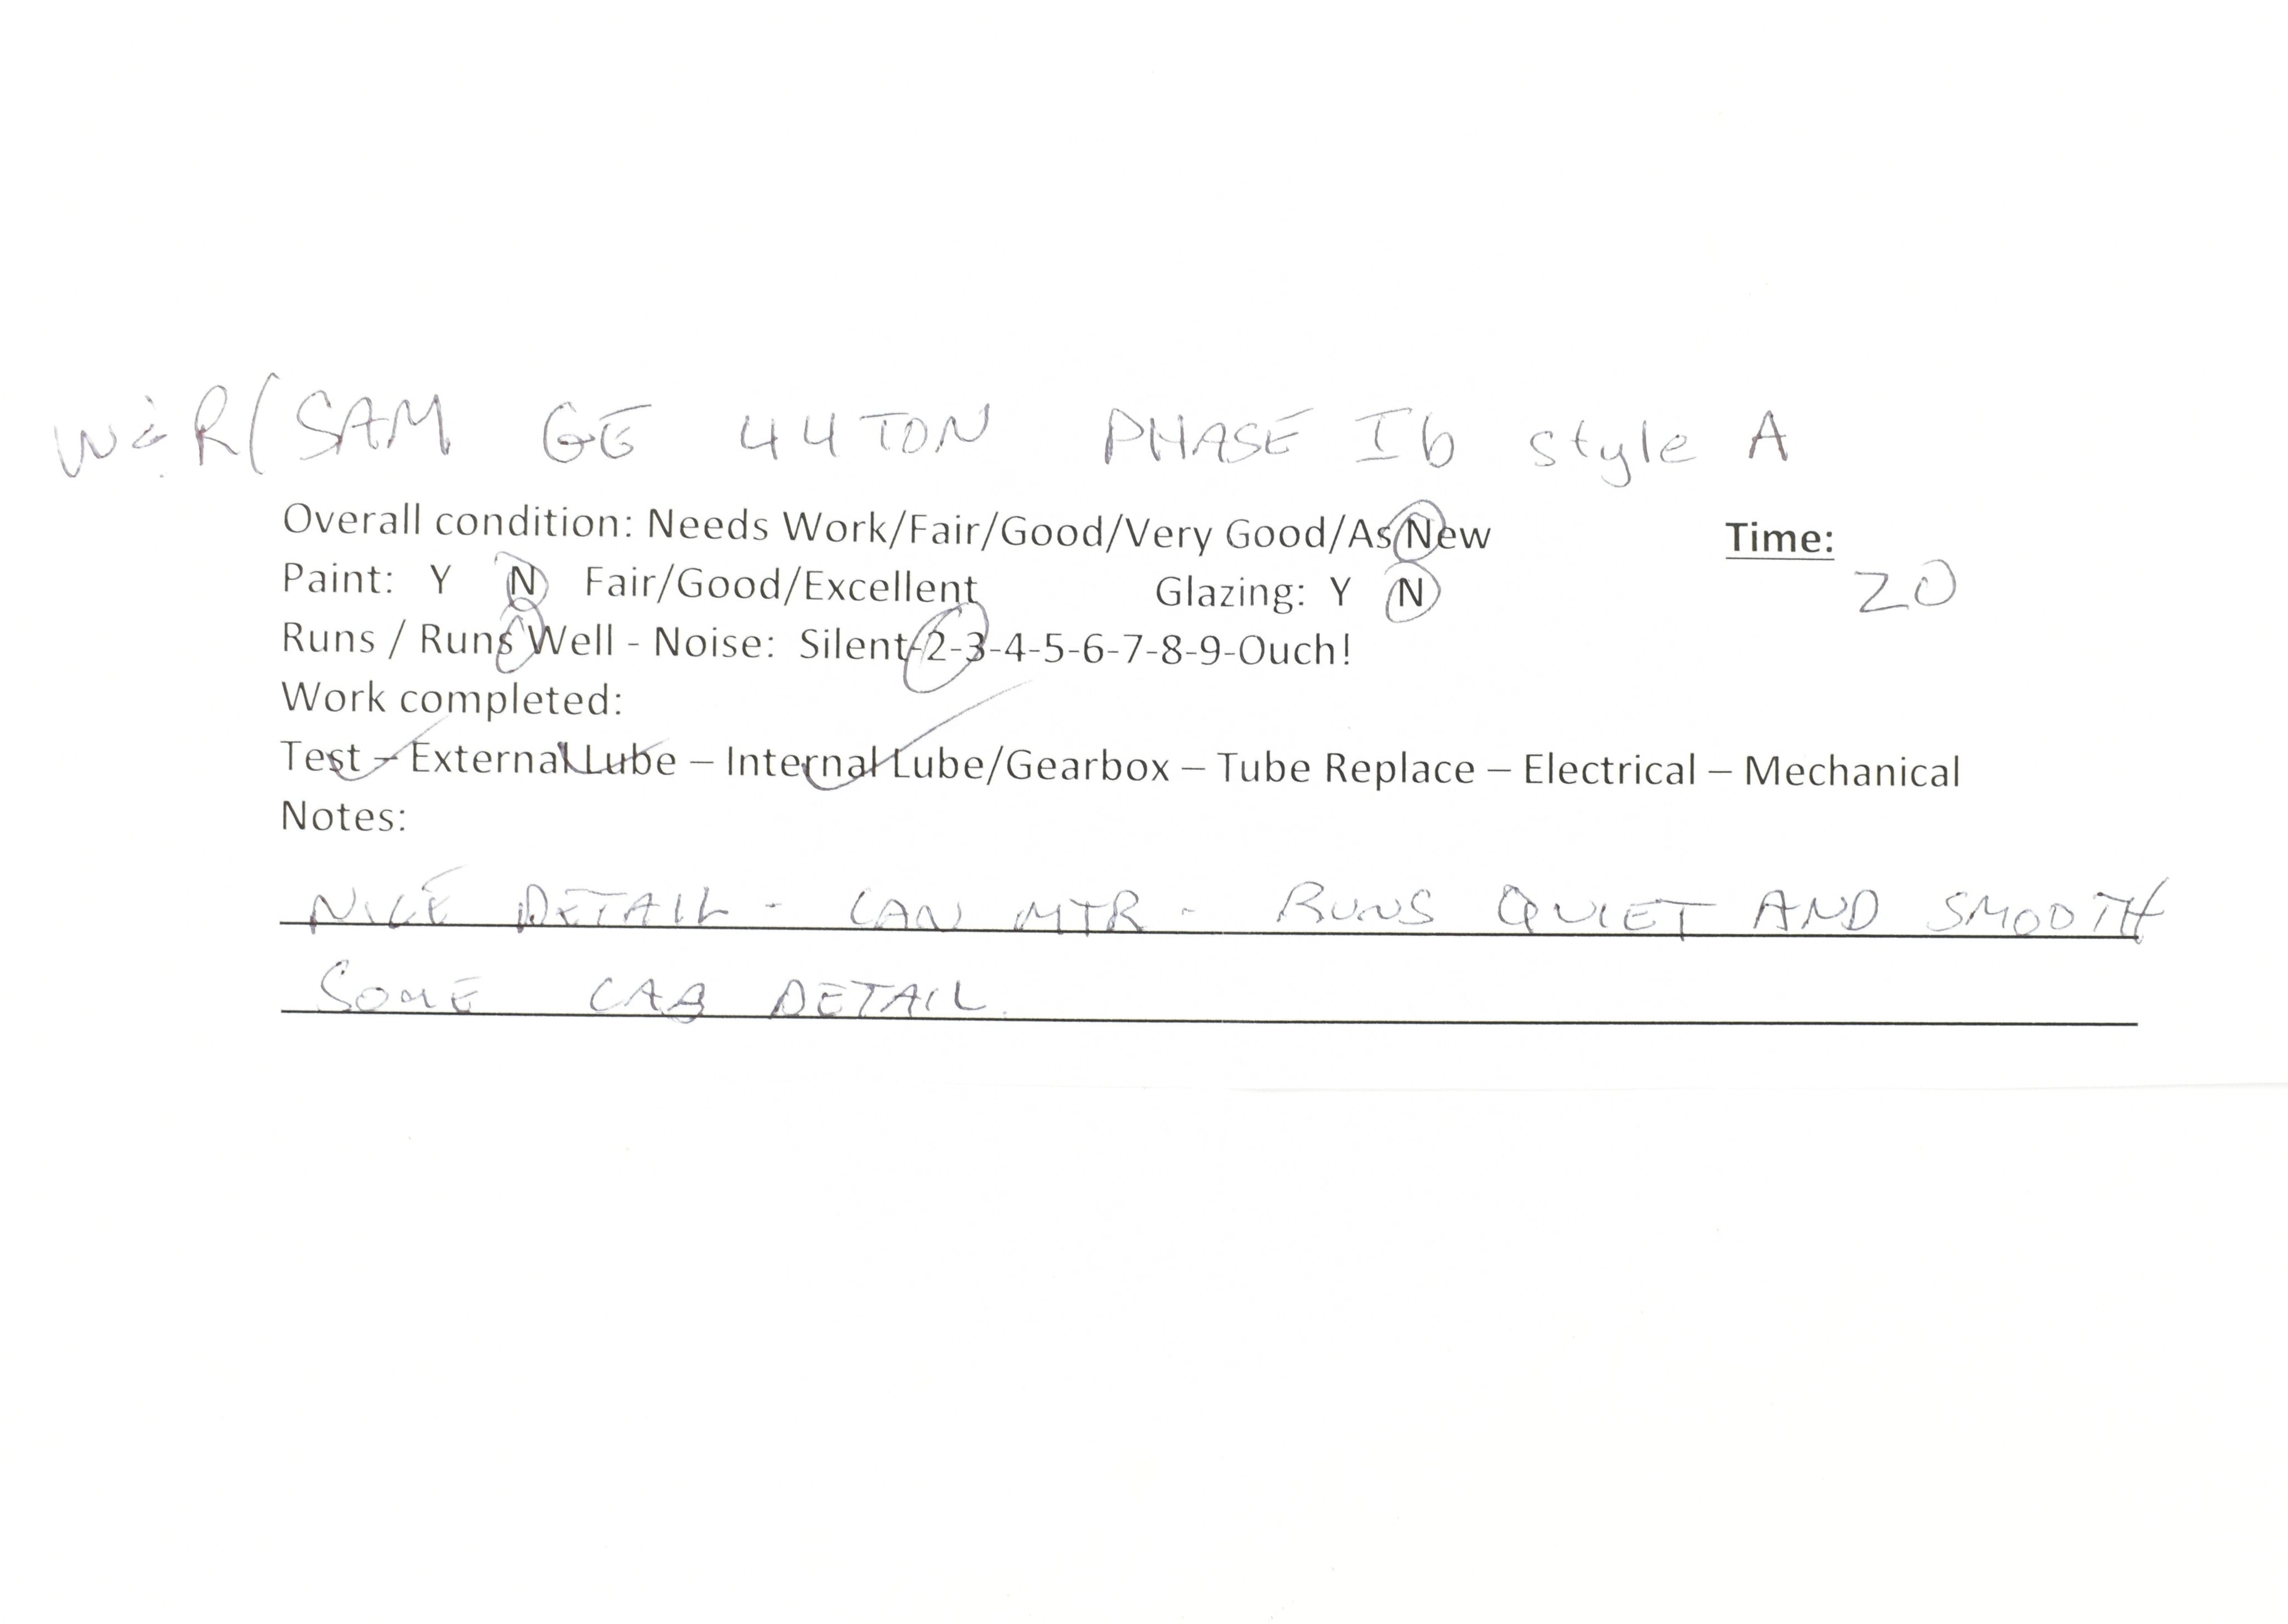 W&R/SAM GE 44 TON PHASE Ib style A
Overall condition: Needs Work/Fair/Good/Very Good/As New Time:
Paint: Y N Fair/Good/Excellent Glazing: Y N 20
Runs / Runs Well - Noise: Silent-2-3-4-5-6-7-8-9-Ouch!
Work completed:
Test – External Lube – Internal Lube/Gearbox – Tube Replace – Electrical – Mechanical
Notes:
NICE DETAIL - CAN MTR - RUNS QUIET AND SMOOTH
SOME CAB DETAIL.